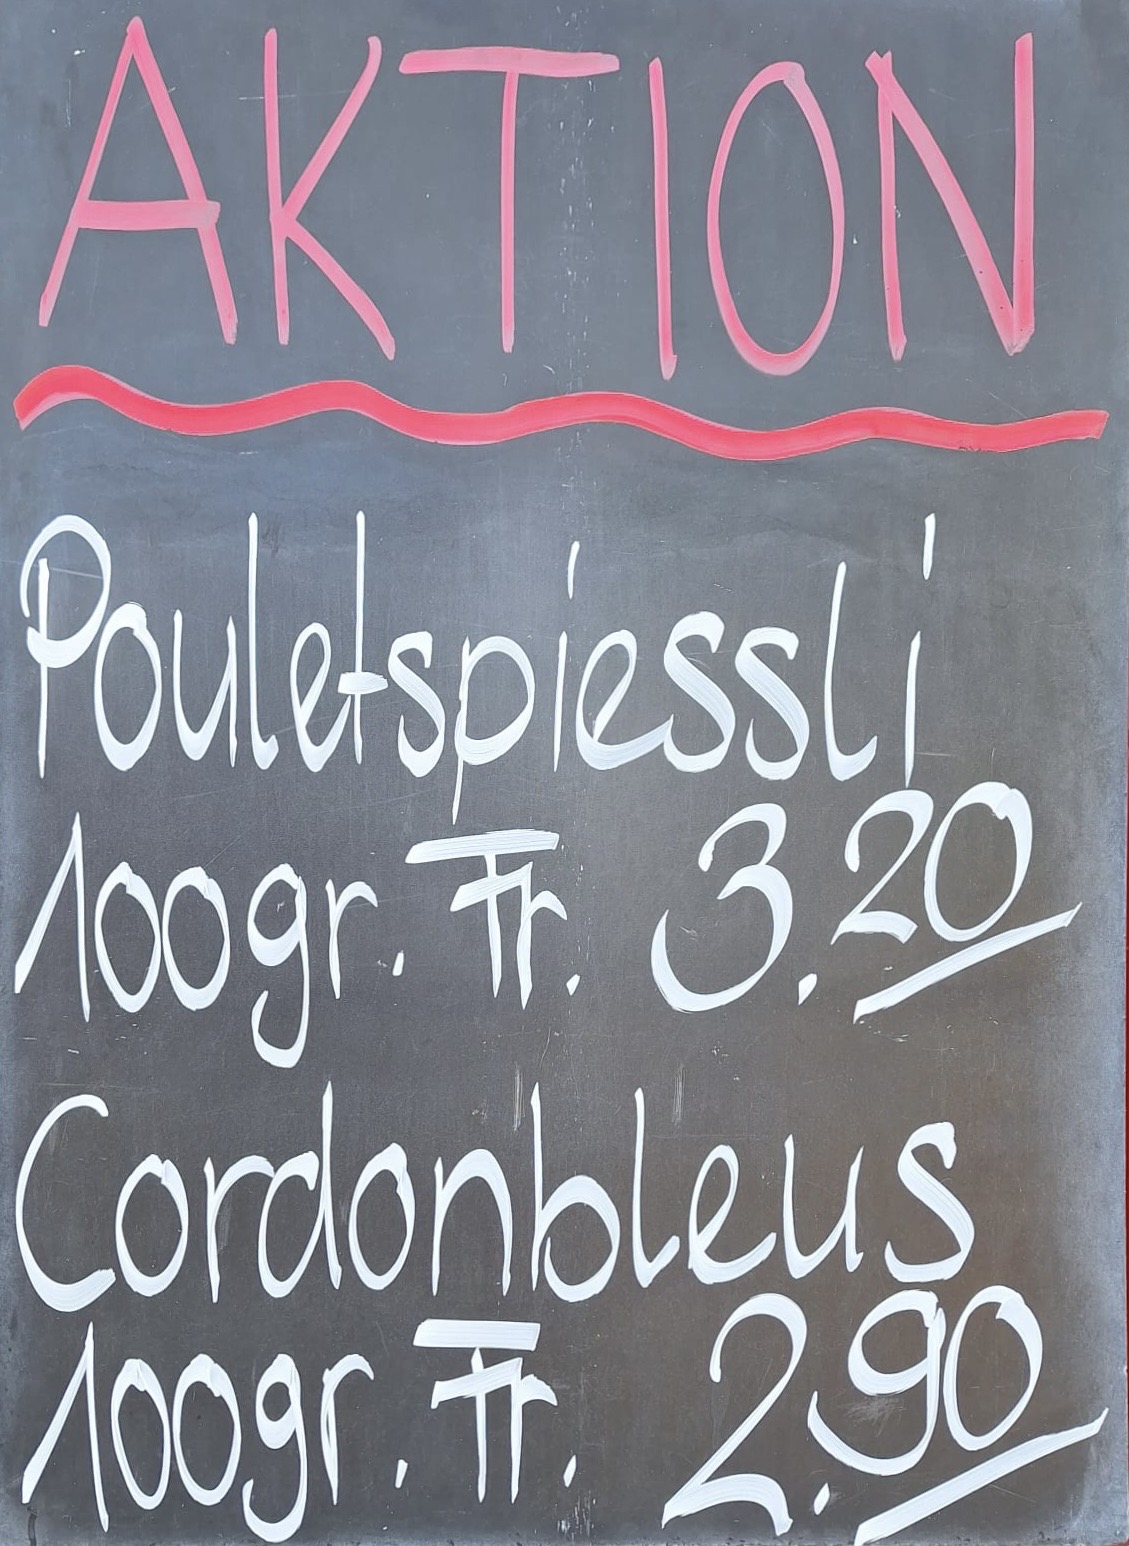 AKTION
Pouletspiessli
100gr. Fr. 3.20
Cordonbleus
100gr. Fr. 2.90